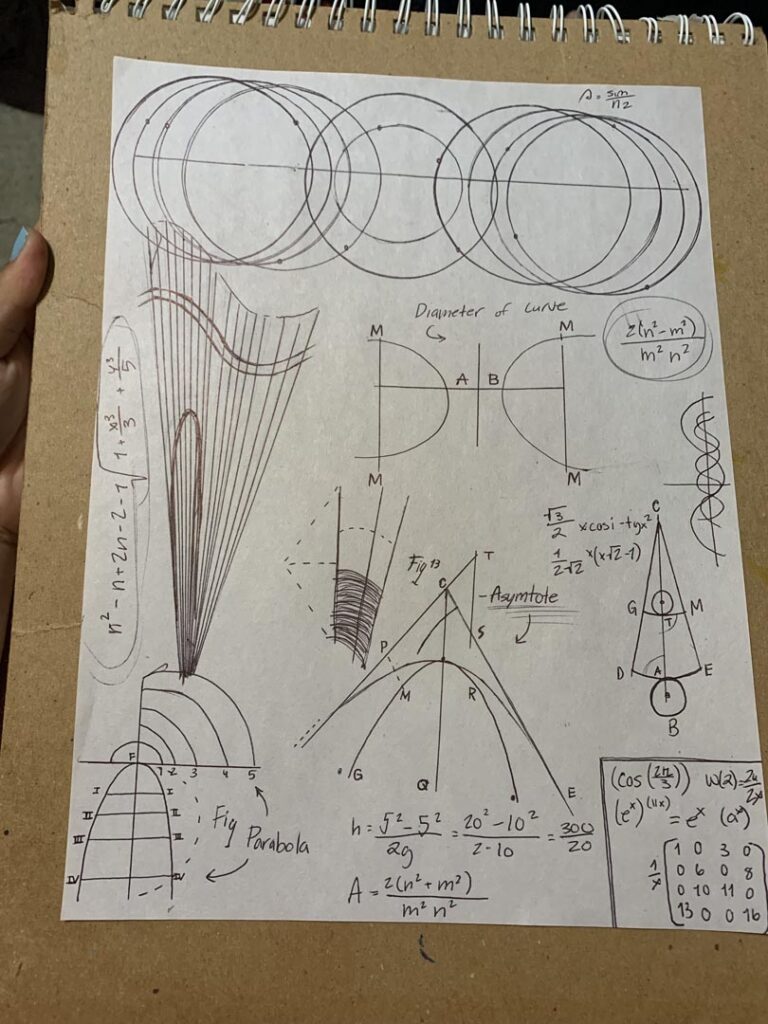 A = sin/n2
Diameter of curve
M M
A B
M M
2(n² - m²)/m² n²
n² - n + 2n - 2 - 1 √1 + x³/3 + y³/5
√3/2 x cosi - tgx²
1/2√2 x (x√2 - 1)
C
G T M
D A E
P
B
Fig 13
T
C
- Asymtote
S
P
M R
G
Q
E
F 1 2 3 4 5
I I
II II
III III
IV IV
Fig
Parabola
h = √5² - 5²/2g = 20² - 10²/2-10 = 300/20
A = 2(n² + m²)/m² n²
(cos(2π/3))
(eˣ) = eˣ (aˣ)
1/x [1 0 3 0
0 6 0 8
0 10 11 0
13 0 0 16]